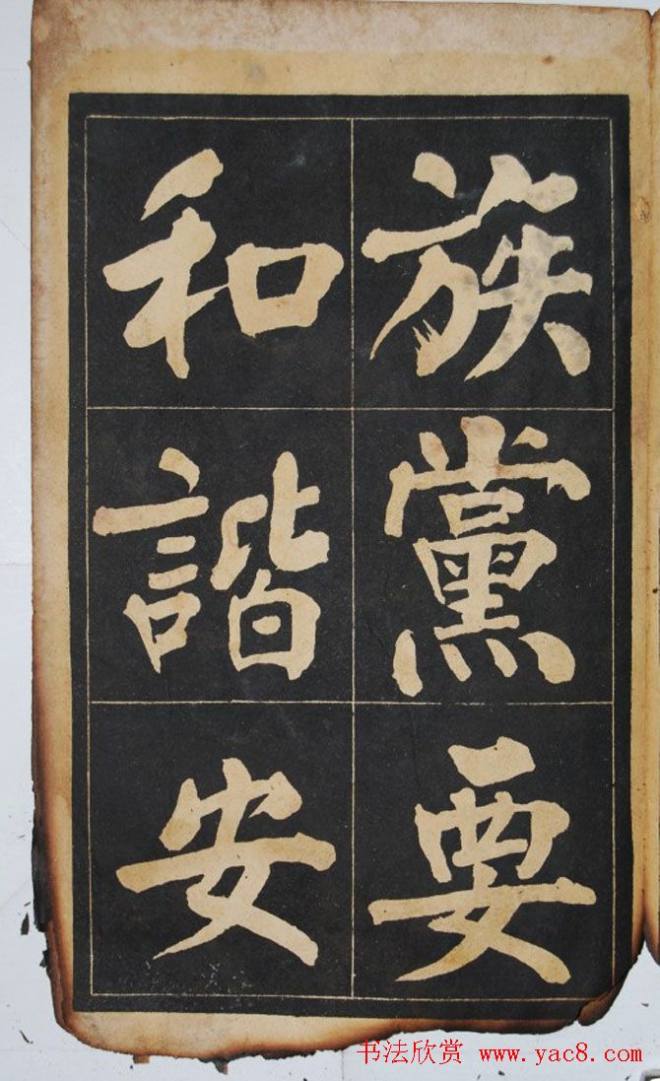 族黨要
和諧安
书法欣赏 www.yac8.com